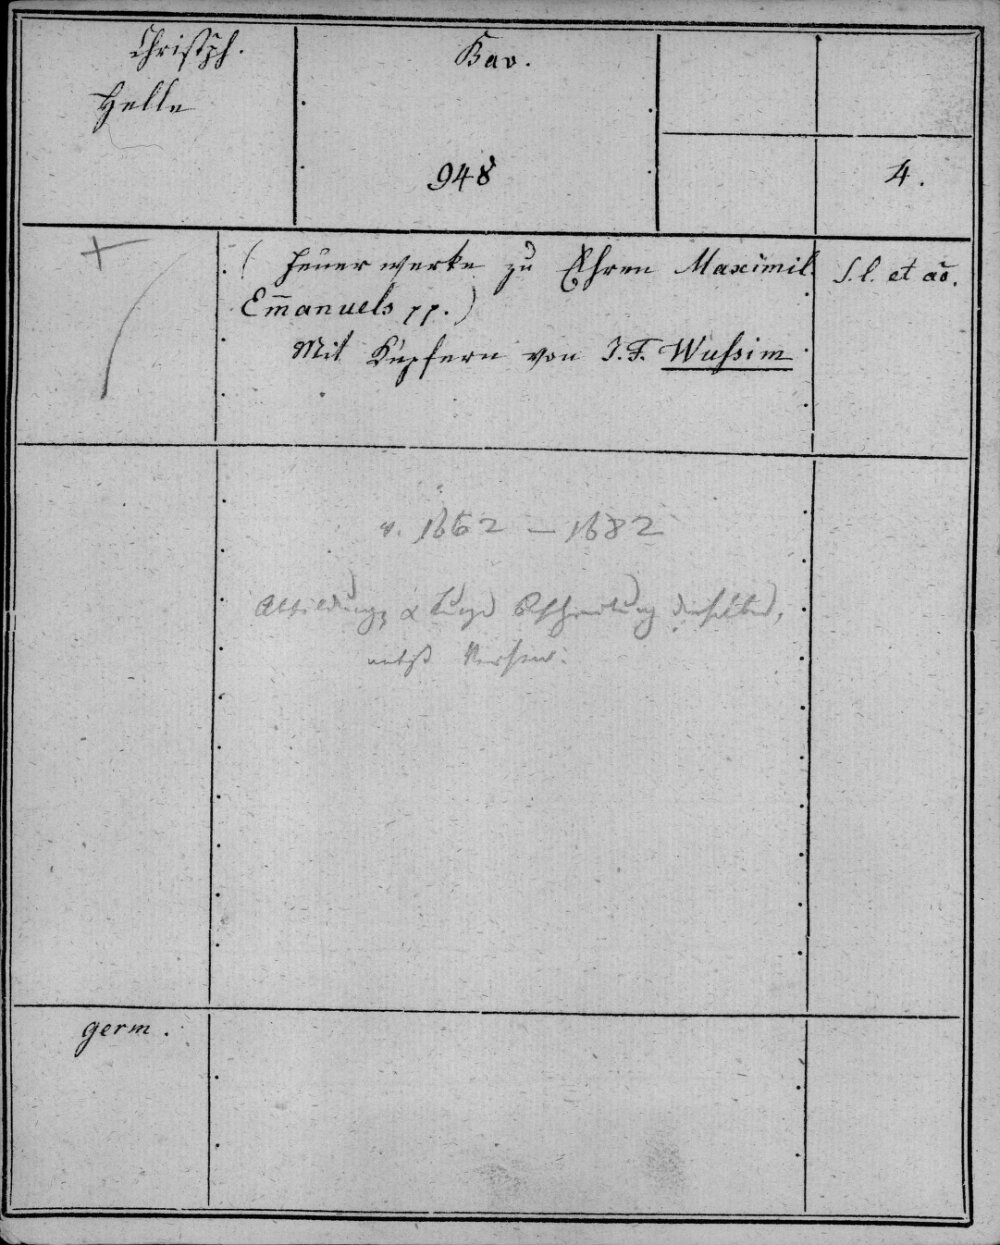 Christph.
Helle
Bav.
948
4.
( Feuerwerke zu Ehren Maximil.
Em̅anuels pp.)
Mit Kupfern von J. F. Wußim
S. l. et ao̅.
v. 1662 – 1682
Abbildung & kurze Beschreibung derselben,
nebst Versen.
germ.